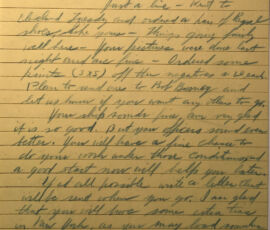 Just a line - Went to
Cleveland Tuesday and ordered a pair of Regal
shoes, like yours - Things going fairly
well here - Your pictures were done last
night and are fine - Ordered some
prints (385) off the negatives
Plan to send one to Bob and
let us know if you want any others to go.
Your ship sounds fine, am very glad
it is so good. But your officers sound even
better. You will have a fine chance to
do your work under those conditions and
a good start now will help you later.
If at all possible write a letter that
will be sent when you go. I am glad
that you will have some extra time
in New York, as you may load